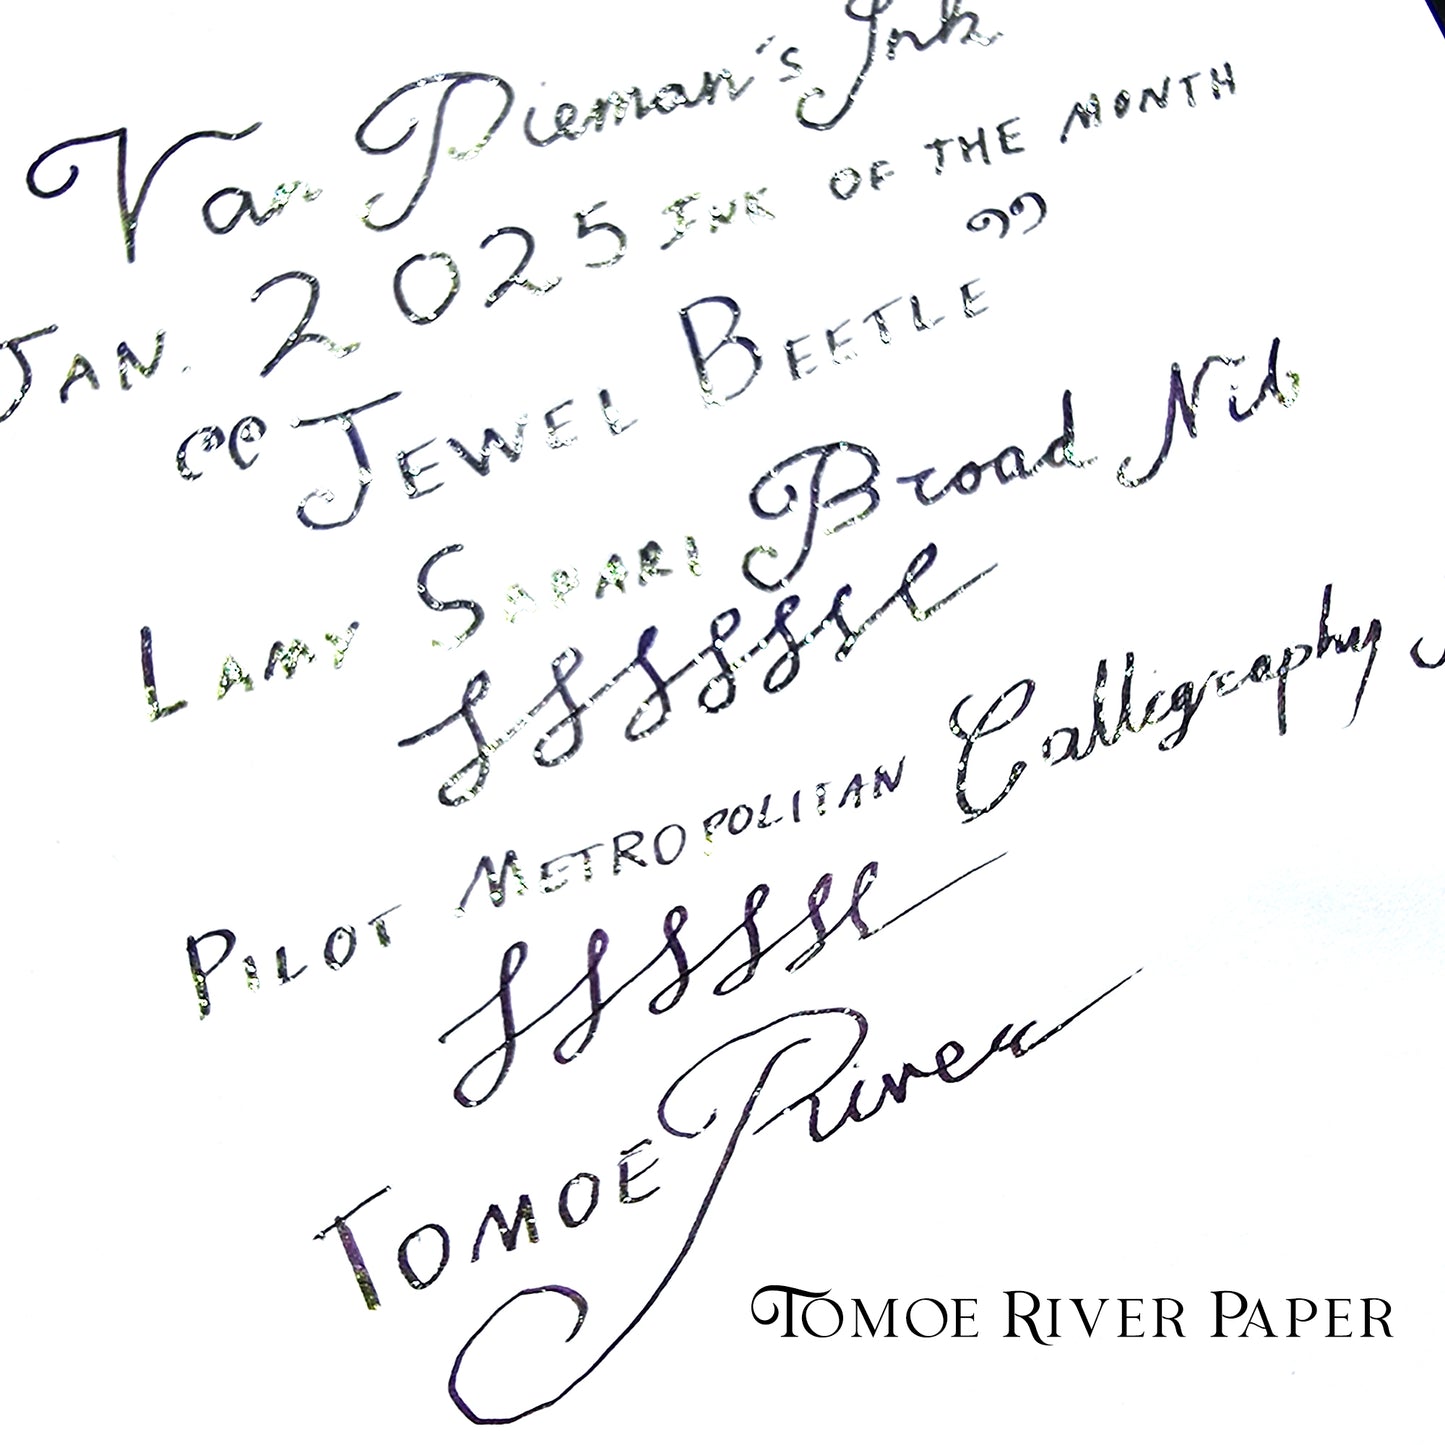 Van Pieman's Ink
JAN. 2025 INK OF THE MONTH
“JEWEL BEETLE”
LAMY SAFARI Broad Nib
PILOT METROPOLITAN Calligraphy
TOMOE River
TOMOE RIVER PAPER